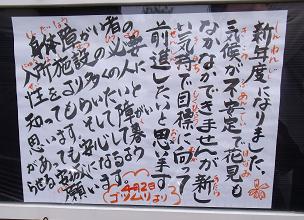 新年度になりました
気候が不安定で花見も
なかなかできませが新し
い気持で目標に向って
前進したいと思います
身体障がい者の
入所施設の必要
性をより多くの人に
知ってもらいたいと
思います そして障
がいがあっても安心して暮
らせる
お願い
4月2日
ゴツムリより